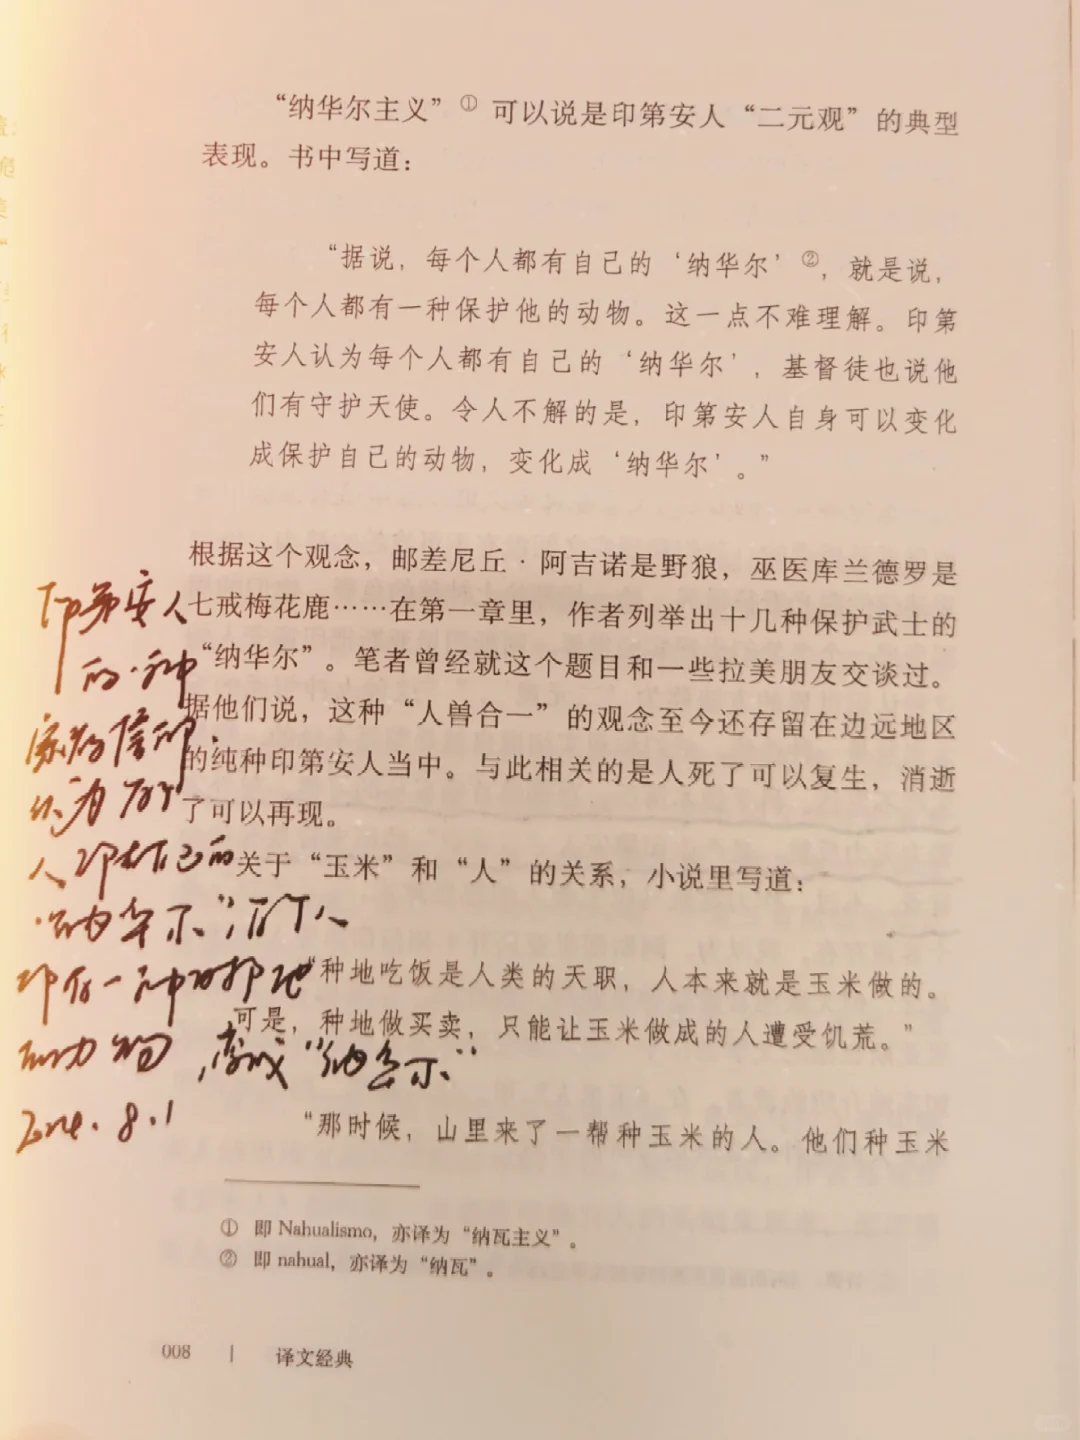 “纳华尔主义”①可以说是印第安人“二元观”的典型
表现。书中写道：
“据说，每个人都有自己的‘纳华尔’②，就是说，
每个人都有一种保护他的动物。这一点不难理解。印第
安人认为每个人都有自己的‘纳华尔’，基督徒也说他
们有守护天使。令人不解的是，印第安人自身可以变化
成保护自己的动物，变化成‘纳华尔’。”
根据这个观念，邮差尼丘·阿吉诺是野狼，巫医库兰德罗是
七戒梅花鹿……在第一章里，作者列举出十几种保护武士的
“纳华尔”。笔者曾经就这个题目和一些拉美朋友交谈过。
据他们说，这种“人兽合一”的观念至今还存留在边远地区
的纯种印第安人当中。与此相关的是人死了可以复生，消逝
了可以再现。
关于“玉米”和“人”的关系，小说里写道：
“种地吃饭是人类的天职，人本来就是玉米做的。
可是，种地做买卖，只能让玉米做成的人遭受饥荒。”
“那时候，山里来了一帮种玉米的人。他们种玉米
① 即 Nahualismo，亦译为“纳瓦主义”。
② 即 nahual，亦译为“纳瓦”。
008 | 译文经典
印第安人
的一种
宗教信仰.
认为每个
人都有自己的
“纳华尔”，每个人
都有一种保护他
动物，变成“纳华尔”
2024.8.1